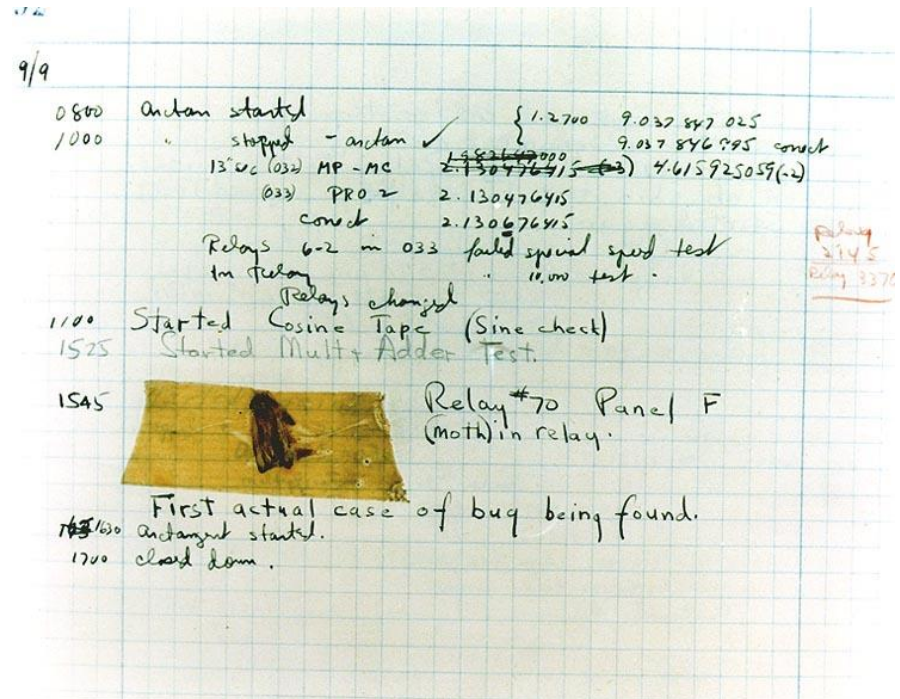 9/9
0800 Antan started
1000 " stopped - antan ✓ { 1.2700 9.037 847 025
9.037 846 995 conect
13"uc (032) MP - MC 2.130476415 4.615925059(-2)
(033) PRO 2 2.130476415
conect 2.130676415
Relays 6-2 in 033 failed special speed test
In Relay " 10,000 test .
Relay
2145
Relay 3370
Relays changed
1100 Started Cosine Tape (Sine check)
1525 Started Mult + Adder Test.
1545 Relay #70 Panel F
(moth) in relay.
First actual case of bug being found.
1630 antangent started.
1700 closed down.